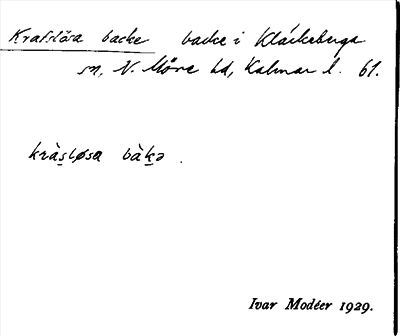 Krafslösa backe backe i Kläckeberga
sn, N. Möre hd, Kalmar l. 61.
kràsløsa bàkə .
Ivar Modéer 1929.